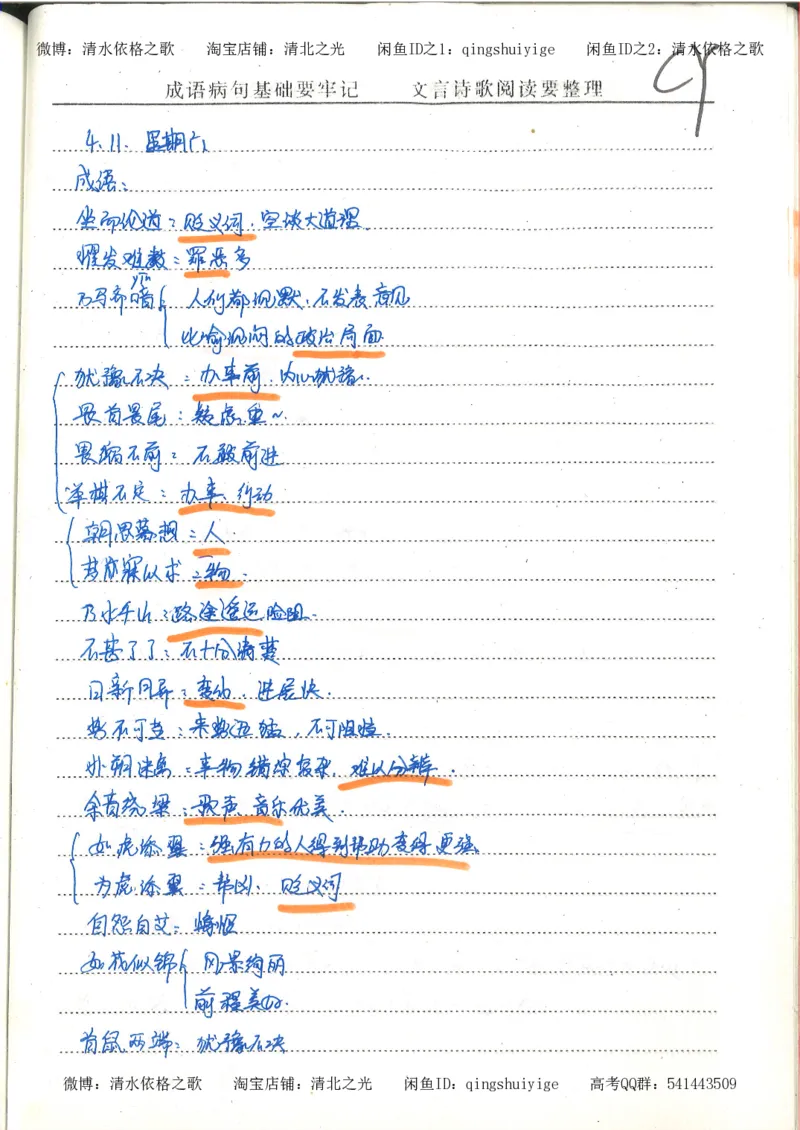 微博：清水依格之歌 淘宝店铺：清北之光 闲鱼ID之1：qingshuiyige 闲鱼ID之2：清水依格之歌
成语病句基础要牢记 文言诗歌阅读要整理
4.11. 星期六
成语：
坐而论道：贬义词，空谈大道理
擢发难数：罪恶多
yīn
万马齐喑{ 人们都沉默，不发表意见
比喻沉闷的政治局面
犹豫不决：办事前，内心犹豫.
畏首畏尾：疑虑重~.
畏缩不前：不敢前进
举棋不定：办事、行动
朝思暮想：人
梦寐以求：物
万水千山：路途遥远险阻.
不甚了了：不十分清楚
日新月异：变化，进展快.
势不可挡：来势迅猛，不可阻挡.
扑朔迷离：事物错综复杂，难以分辨.
余音绕梁：歌声、音乐优美.
如虎添翼：强有力的人得到帮助变得更强。
为虎添翼：帮凶，贬义词
自怨自艾：悔恨
如花似锦{ 风景绚丽
前程美好.
首鼠两端：犹豫不决
微博：清水依格之歌 淘宝店铺：清北之光 闲鱼ID：qingshuiyige 高考QQ群：541443509